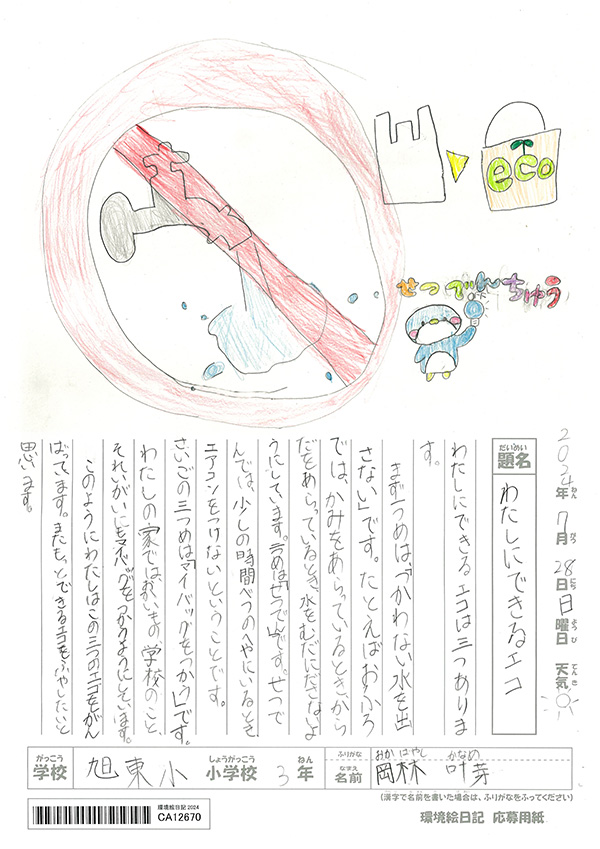 eco
せつでんちゅう
2024年ねん 7月がつ 28日にち 日曜日ようび 天気てんき
題名だいめい わたしにできるエコ
わたしにできるエコは三つありま
す。
まず一つめは、「つかわない水を出
さない」です。たとえばおふろ
では、かみをあらっているときから
だをあらっているとき、水をむだにださないよ
うにしています。二つめは「せつでん」です。せつで
んでは、少しの時間べつのへやにいるとき
エアコンをつけないということです。
さいごの三つめは「マイバッグをつかう」です。
わたしの家では、おかいもの、学校のこと、
それいがいにもマイバッグをつかうようにしています。
このようにわたしはこの三つのエコをがん
ばってます。またもっとできるエコをふやしたいと
思います。
学校がっこう 旭東小 小学校しょうがっこう 3年ねん ふりがな おかばやし かなめ 名前なまえ 岡林 叶芽
(漢字で名前を書いた場合は、ふりがなをふってください)
環境絵日記2024
CA12670
環境絵日記 応募用紙